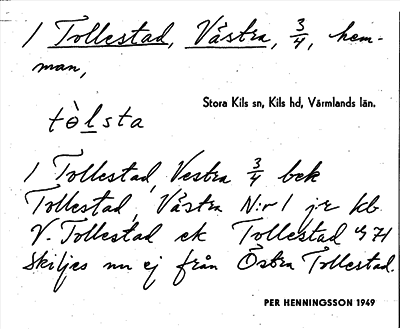 1 Tollestad, Västra, 3/4, hem-
man,
Stora Kils sn, Kils hd, Värmlands län.
tò̀lsta
1 Tollestad Vestra 3/4 bek
Tollestad, Västra N:r 1 jr kb
V. Tollestad ek Tollestad 71
Skiljes nu ej från Östra Tollestad.
PER HENNINGSSON 1949